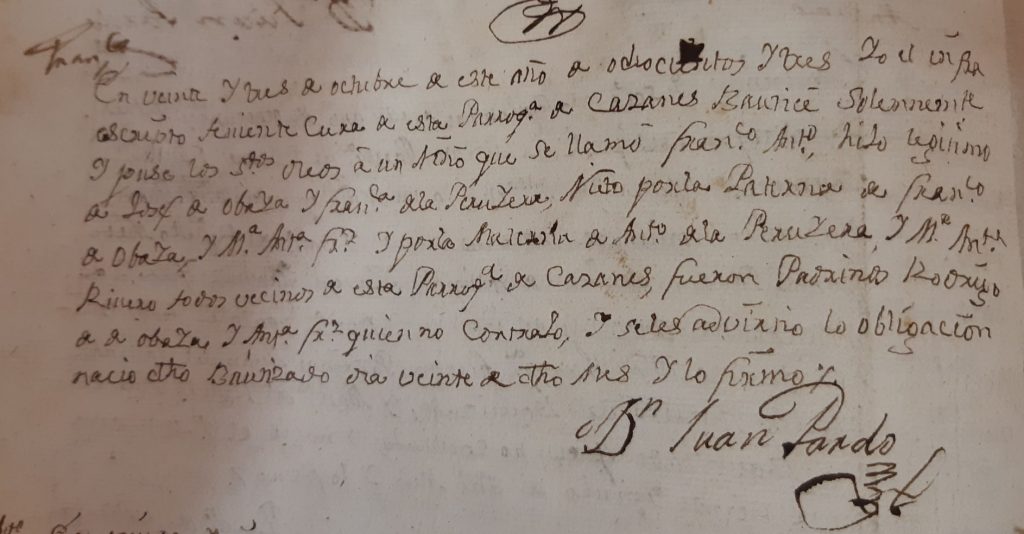 Fran.co
En veinte Y tres de octubre de este Año de ochocientos Y tres Yo el infra
escripto teniente Cura de esta Parroq.a de Cazanes Bauticé Solennemte
Y puse los S.tos oleos â un Niño que se llamô Fran.co Ant.o, hilo legitimo
de Josef de Obaza Y Fran.ca de la Peruyera, Nieto por la Paterna de Fran.co
de Obaza, Y M.a Ant.a frz Y por la Materna de Ant.o de la Peruyera, Y M.a Ant.a
Rivero todos vecinos de esta Parroq.a de Cazanes, fueron Padrinos Rodrigo
de obaza, Y Ant.a frz quien no Contrajo, Y seles advirtio lo obligación
nacio dho Bautizado dia veinte de dho Mes Y lo firmo
Dn Juan Pardo